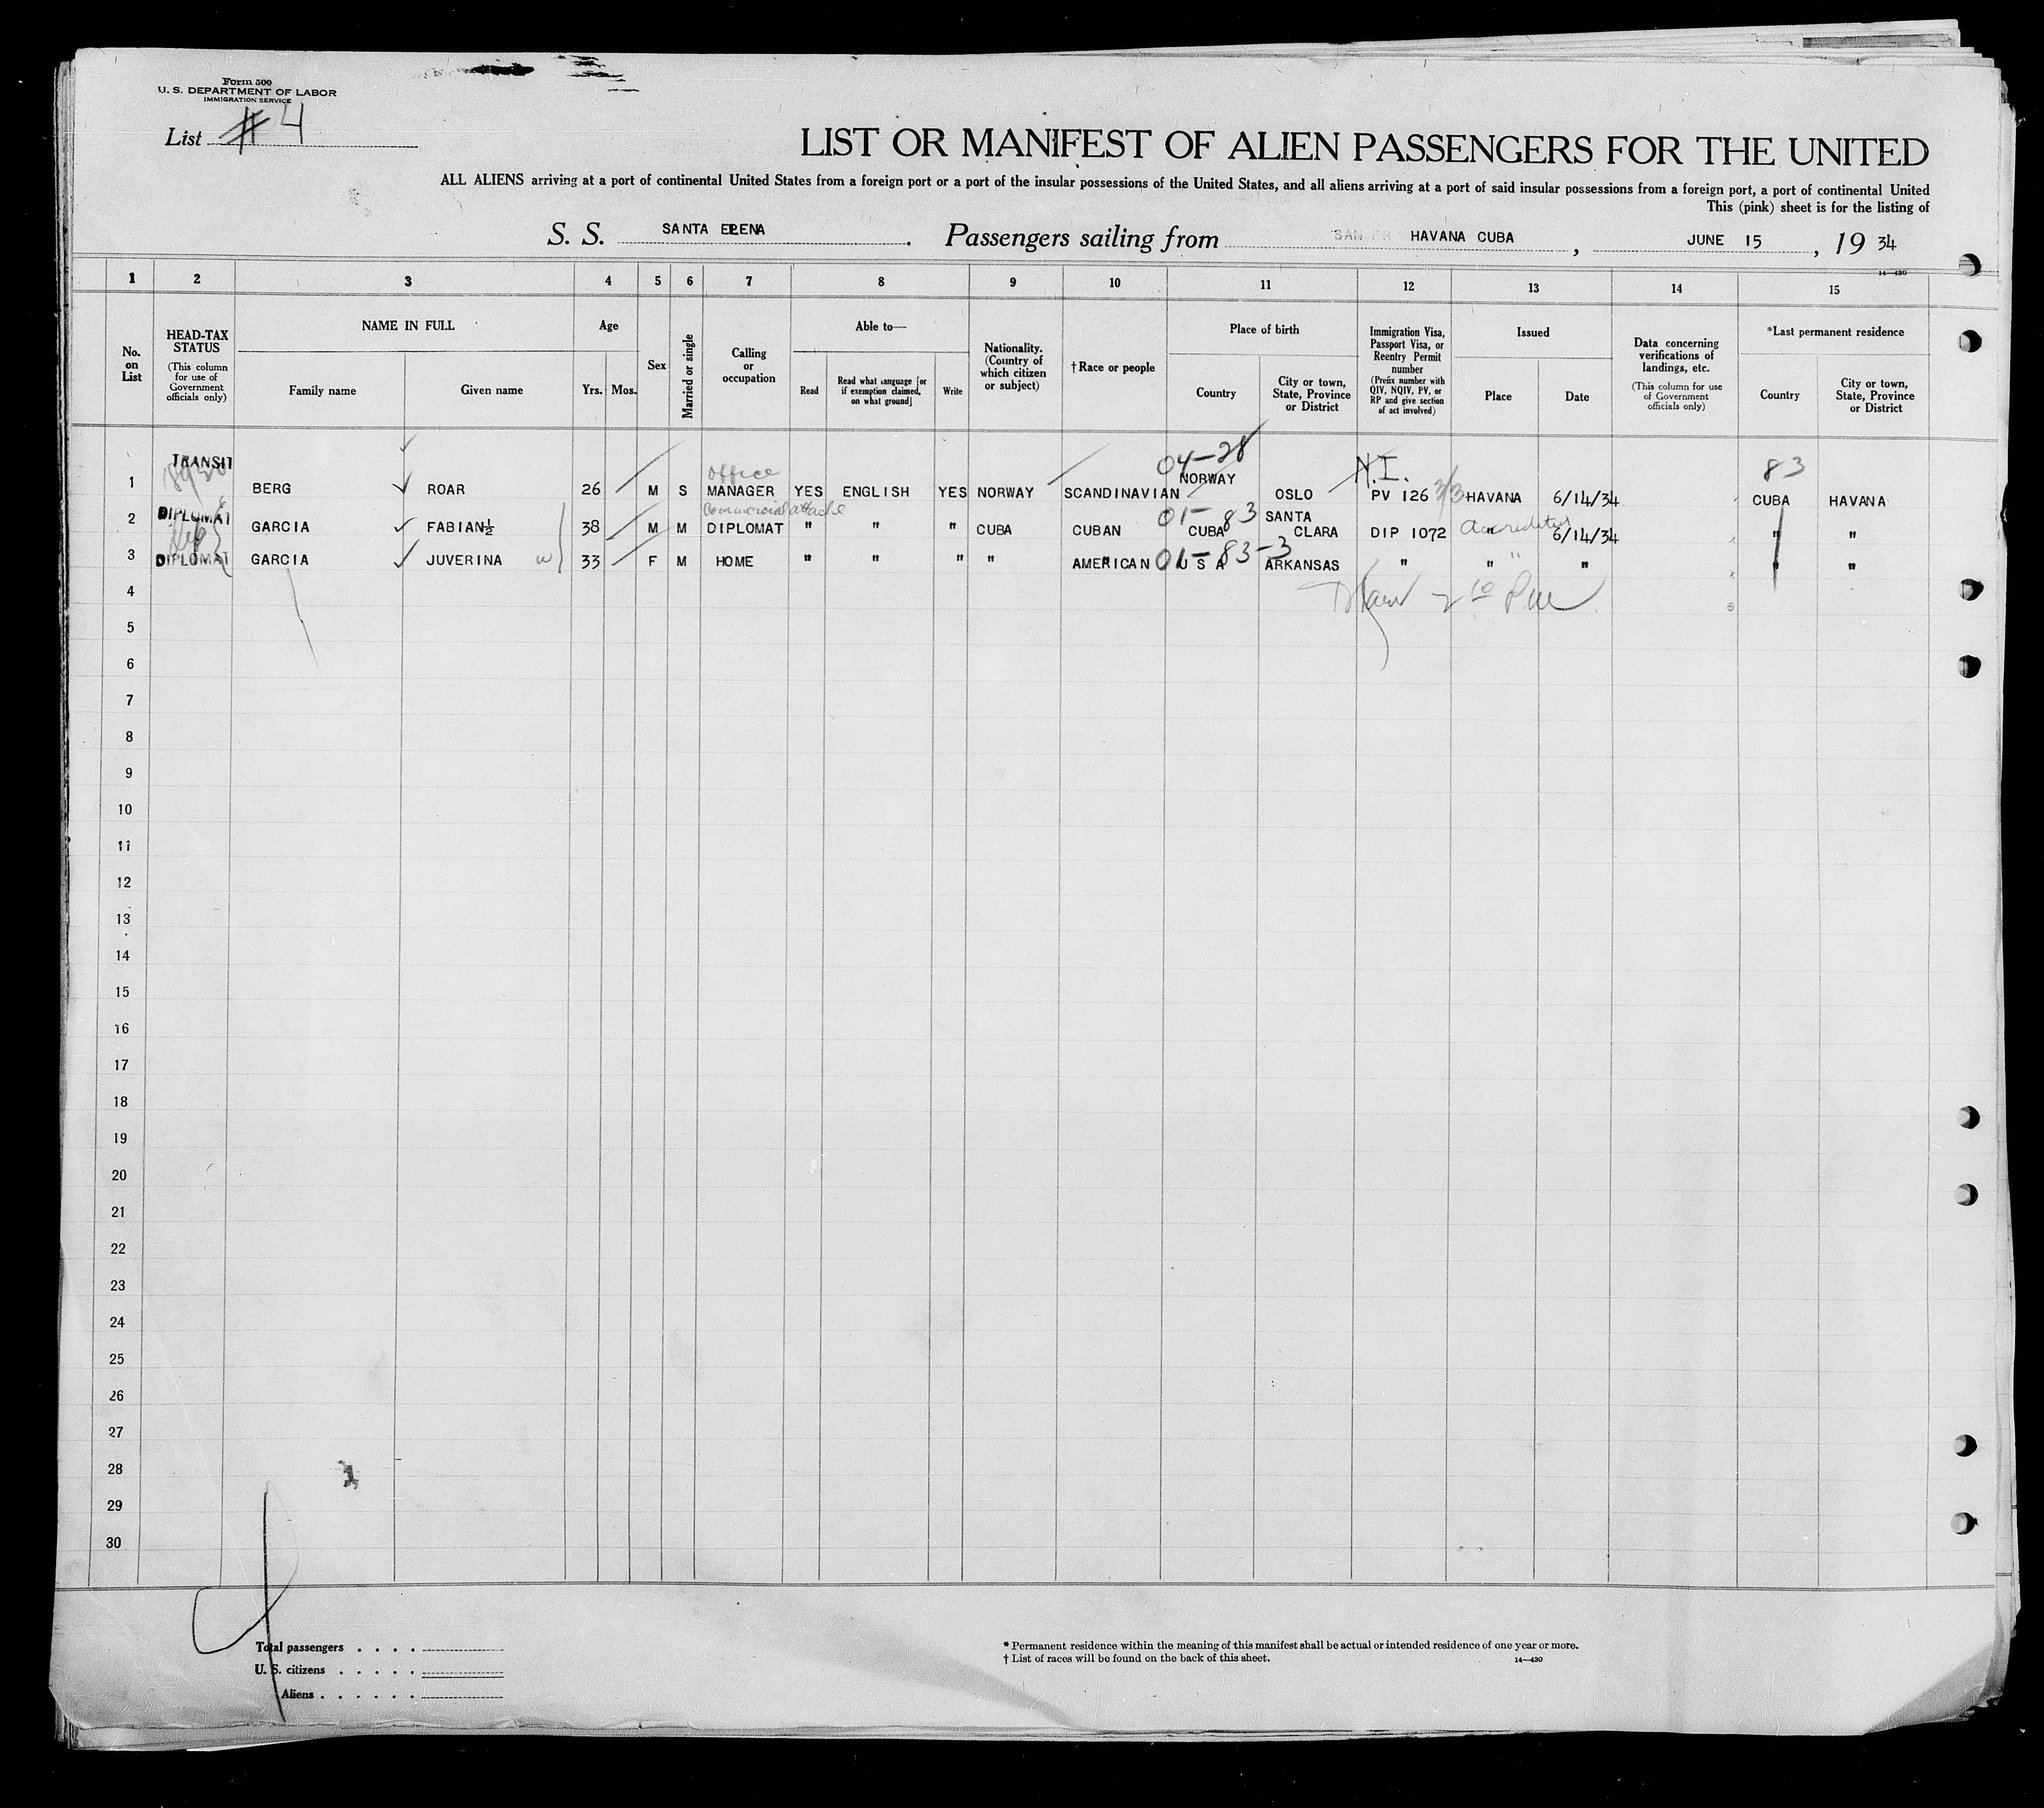 Form 500
U. S. DEPARTMENT OF LABOR
IMMIGRATION SERVICE
List # 4
LIST OR MANIFEST OF ALIEN PASSENGERS FOR THE UNITED
ALL ALIENS arriving at a port of continental United States from a foreign port or a port of the insular possessions of the United States, and all aliens arriving at a port of said insular possessions from a foreign port, a port of continental United
This (pink) sheet is for the listing of
S. S. SANTA ELENA. Passengers sailing from HAVANA CUBA, JUNE 15, 19 34
14—430
1 2 3 4 5 6 7 8 9 10 11 12 13 14 15
No. on List
HEAD-TAX STATUS (This column for use of Government officials only)
NAME IN FULL Family name Given name
Age Yrs. Mos.
Sex
Married or single
Calling or occupation
Able to— Read Read what language [or if exemption claimed, on what ground] Write
Nationality. (Country of which citizen or subject)
† Race or people
Place of birth Country City or town, State, Province or District
Immigration Visa, Passport Visa, or Reentry Permit number (Prefix number with QIV, NQIV, PV, or RP and give section of act involved)
Issued Place Date
Data concerning verifications of landings, etc. (This column for use of Government officials only)
*Last permanent residence Country City or town, State, Province or District
TRANSIT office 04-28 N.I. 83
1 BERG ROAR 26 M S MANAGER YES ENGLISH YES NORWAY SCANDINAVIAN NORWAY OSLO PV 126 3/3 HAVANA 6/14/34 CUBA HAVANA
DIPLOMAT Commercial attache 01-83
2 GARCIA FABIAN½ 38 M M DIPLOMAT " " " CUBA CUBAN CUBA SANTA CLARA DIP 1072 " 6/14/34 " "
01-83-3
3 DIPLOMAT GARCIA JUVERINA w 33 F M HOME " " " " AMERICAN U S A ARKANSAS " " " " "
4
5
6
7
8
9
10
11
12
13
14
15
16
17
18
19
20
21
22
23
24
25
26
27
28
29
30
Total passengers . . . .
U. S. citizens . . . . .
Aliens . . . . . .
* Permanent residence within the meaning of this manifest shall be actual or intended residence of one year or more.
† List of races will be found on the back of this sheet.
14—430